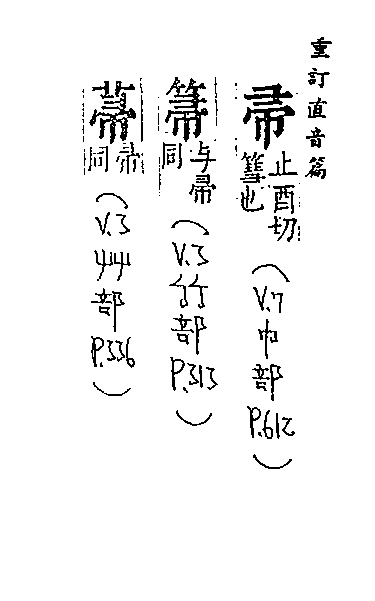 重訂直音篇
帚 止酉切篲也 (V.7 巾部 P.612)
箒 与帚同 (V.3 竹部 P.313)
菷 帚同 (V.3 艸部 P.336)